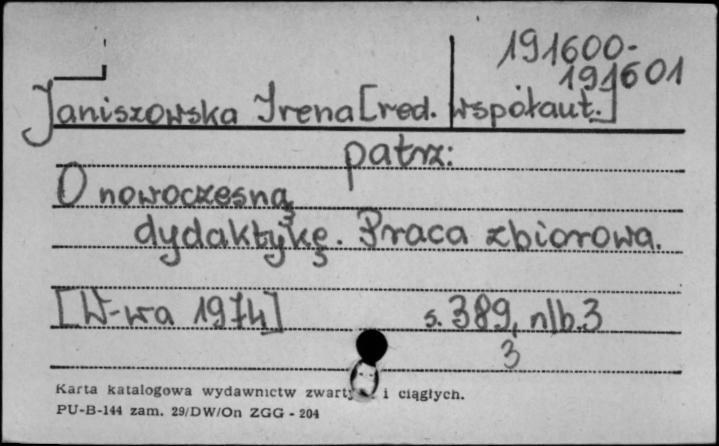 191600-
191601
Janiszowska Irena [red. współaut.]
patrz:
O nowoczesną
dydaktykę. Praca zbiorowa.
[W-wa 1974]	s. 389, nlb. 3
3
Karta katalogowa wydawnictw i ciągłych.
PU-B-144 zam. 29/DW/On ZGG - 204